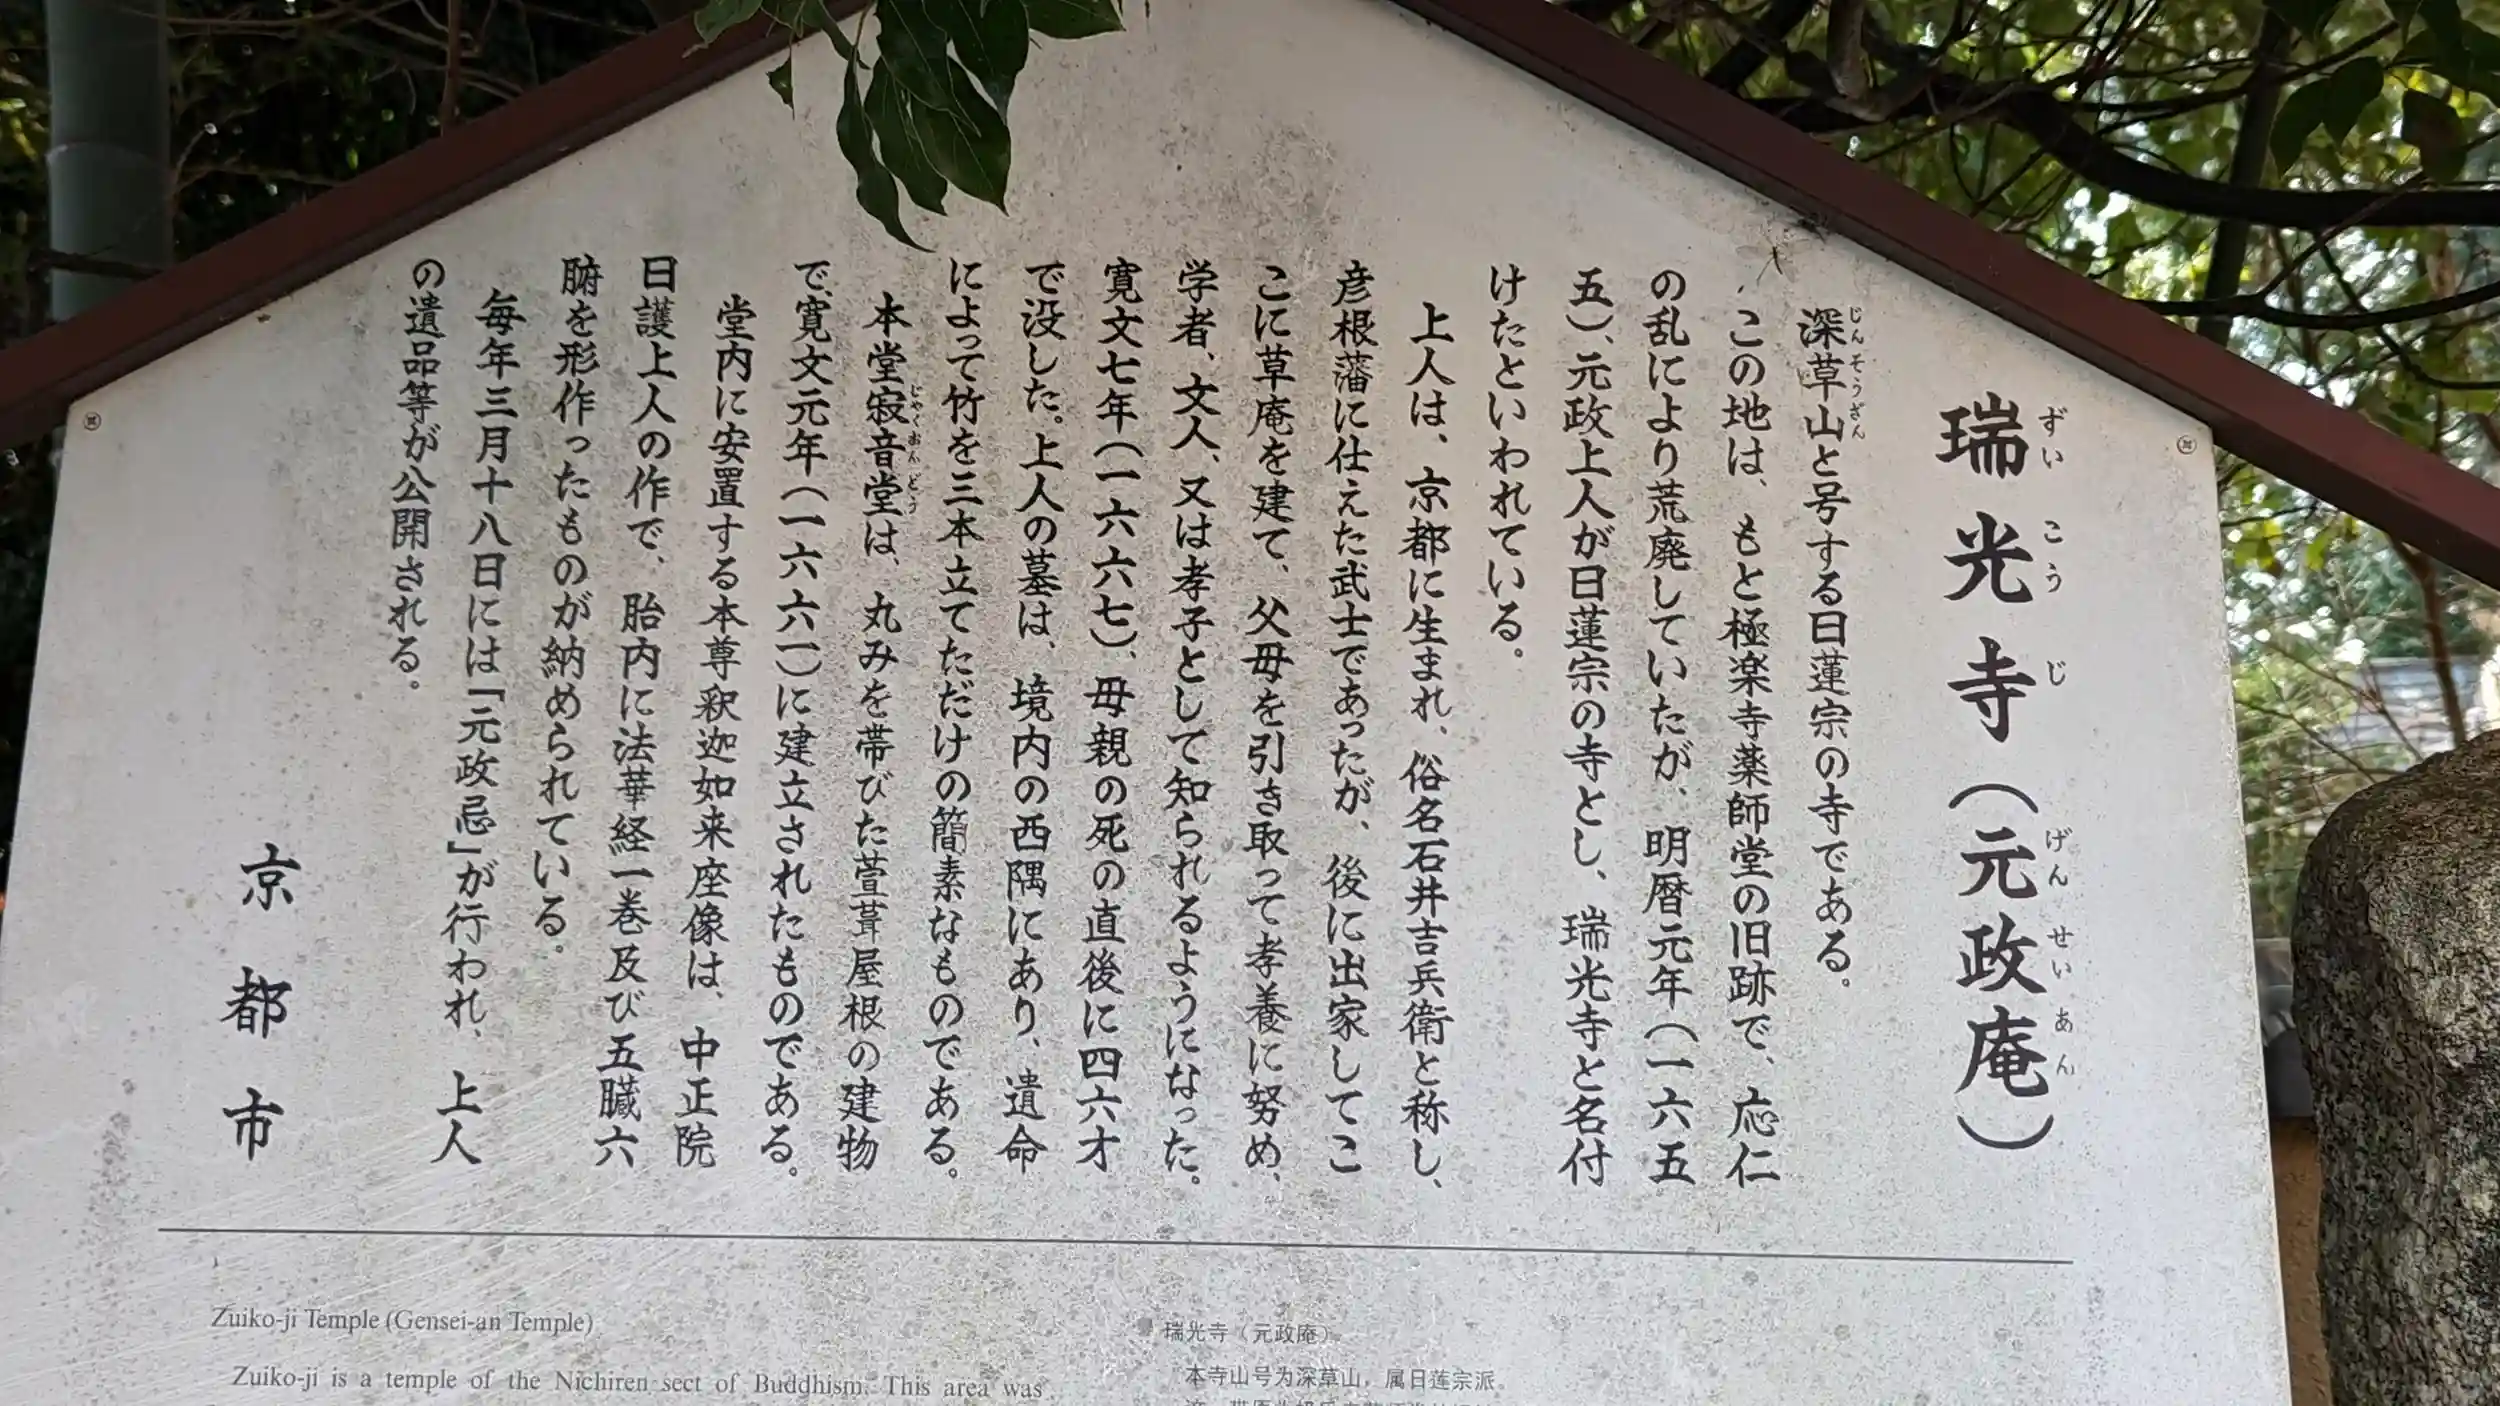 瑞光寺（元政庵）
ずいこうじ げんせいあん
深草山と号する日蓮宗の寺である。
じんそうざん
この地は、もと極楽寺薬師堂の旧跡で、応仁
の乱により荒廃していたが、明暦元年（一六五
五）、元政上人が日蓮宗の寺とし、瑞光寺と名付
けたといわれている。
上人は、京都に生まれ、俗名石井吉兵衛と称し、
彦根藩に仕えた武士であったが、後に出家してこ
こに草庵を建て、父母を引き取って孝養に努め、
学者、文人、又は孝子として知られるようになった。
寛文七年（一六六七）、母親の死の直後に四六才
で没した。上人の墓は、境内の西隅にあり、遺命
によって竹を三本立てただけの簡素なものである。
本堂寂音堂は、丸みを帯びた萱葺屋根の建物
じゃくおんどう
で、寛文元年（一六六一）に建立されたものである。
堂内に安置する本尊釈迦如来座像は、中正院
日護上人の作で、胎内に法華経一巻及び五臓六
腑を形作ったものが納められている。
毎年三月十八日には「元政忌」が行われ、上人
の遺品等が公開される。
京都市
Zuiko-ji Temple (Gensei-an Temple)
Zuiko-ji is a temple of the Nichiren sect of Buddhism. This area was
瑞光寺（元政庵）
本寺山号为深草山，属日莲宗派。